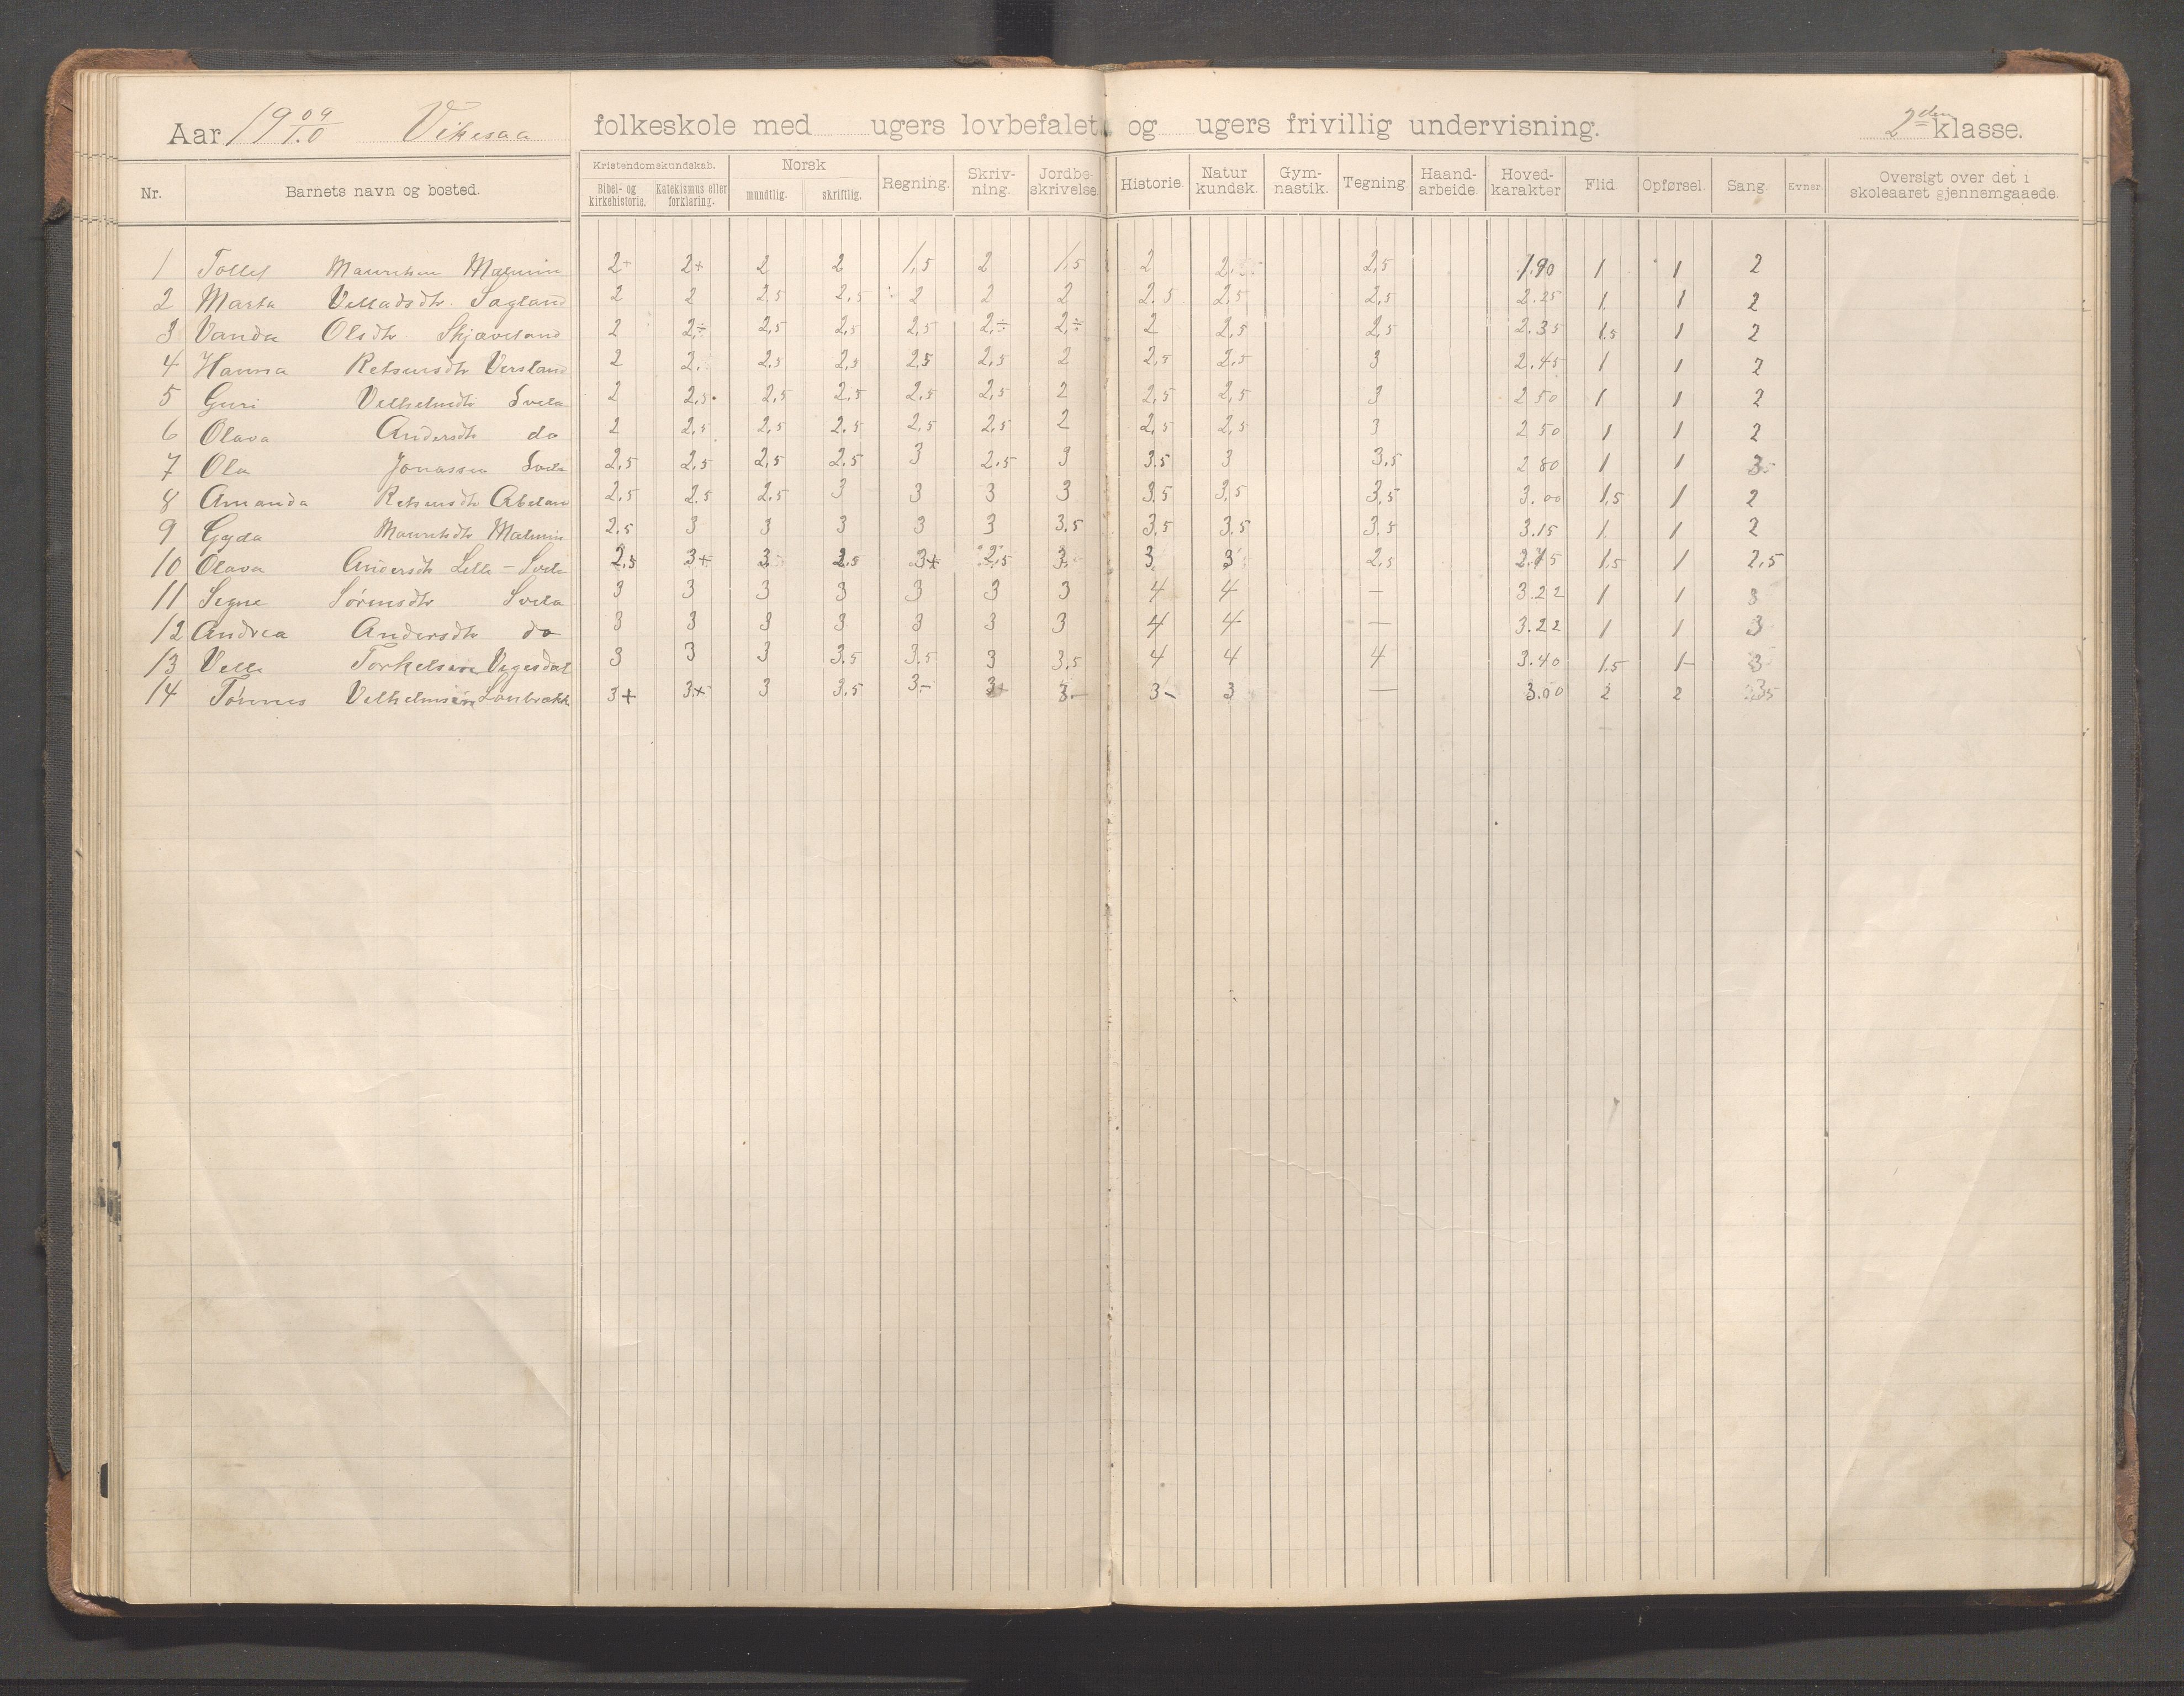 Aar 19 09/10 Vikesaa folkeskole med ugers lovbefalet og ugers frivillig undervisning. 2den klasse.
Nr. Barnets navn og bosted. Kristendomskundskab. Bibel- og kirkehistorie. Katekismus eller forklaring. Norsk mundtlig. skriftlig. Regning. Skriv-ning. Jordbe-skrivelse. Historie. Natur kundsk. Gym-nastik. Tegning. Haand-arbeide. Hoved-karakter Flid. Opførsel. Sang. Evner. Oversigt over det i skoleaaret gjennemgaaede.
1 Tollef Mauritsen Malmin 2+ 2+ 2 2 1,5 2 1,5 2 2, 2,5 1.90 1 1 2
2 Marta Velladsdtr Sagland 2 2 2,5 2,5 2 2 2 2.5 2,5 2,5 2.25 1 1 2
3 Vanda Olsdtr Skjæveland 2 2÷ 2,5 2,5 2,5 2,÷ 2,÷ 2 2,5 2,5 2.35 1.5 1 2
4 Hanna Retsiusdtr Versland 2 2. 2,5 2,5 2,5 2,5 2 2,5 2,5 3 2.45 1 1 2
5 Guri Velhelmdtr Svela 2 2,5 2,5 2,5 2,5 2,5 2 2,5 2,5 3 2 50 1 1 2
6 Olava Andersdtr do 2 2,5 2,5 2,5 2,5 2,5 2 2,5 2,5 3 2 50 1 1 2
7 Ola Jonassen Svela 2,5 2,5 2,5 2,5 3 2,5 3 3.5 3 3,5 2 80 1 1 3
8 Amanda Retsiusdtr Abeland 2,5 2.5 2,5 3 3 3 3 3.5 3,5 3,5 3.00 1,5 1 2
9 Gyda Mauritsdtr Malmin 2,5 3 3 3 3 3 3,5 3,5 3,5 3,5 3.15 1 1 2
10 Olava Andersdtr Lille-Svela 2,5 3+ 3 2.5 3+ 2,5 3 3 3 2,5 2.75 1.5 1 2,5
11 Segne Sörensdtr Svela 3 3 3 3 3 3 3 4 4 — 3.22 1 1 3
12 Andrea Andersdtr do 3 3 3 3 3 3 3 4 4 — 3.22 1 1 3
13 Velle Torkelsen Vegesdal 3 3 3 3,5 3,5 3 3,5 4 4 4 3.40 1.5 1- 3
14 Tönnes Velhelmsen 3+ 3+ 3 3,5 3- 3+ 3- 3- 3 — 3.00 2 2 35